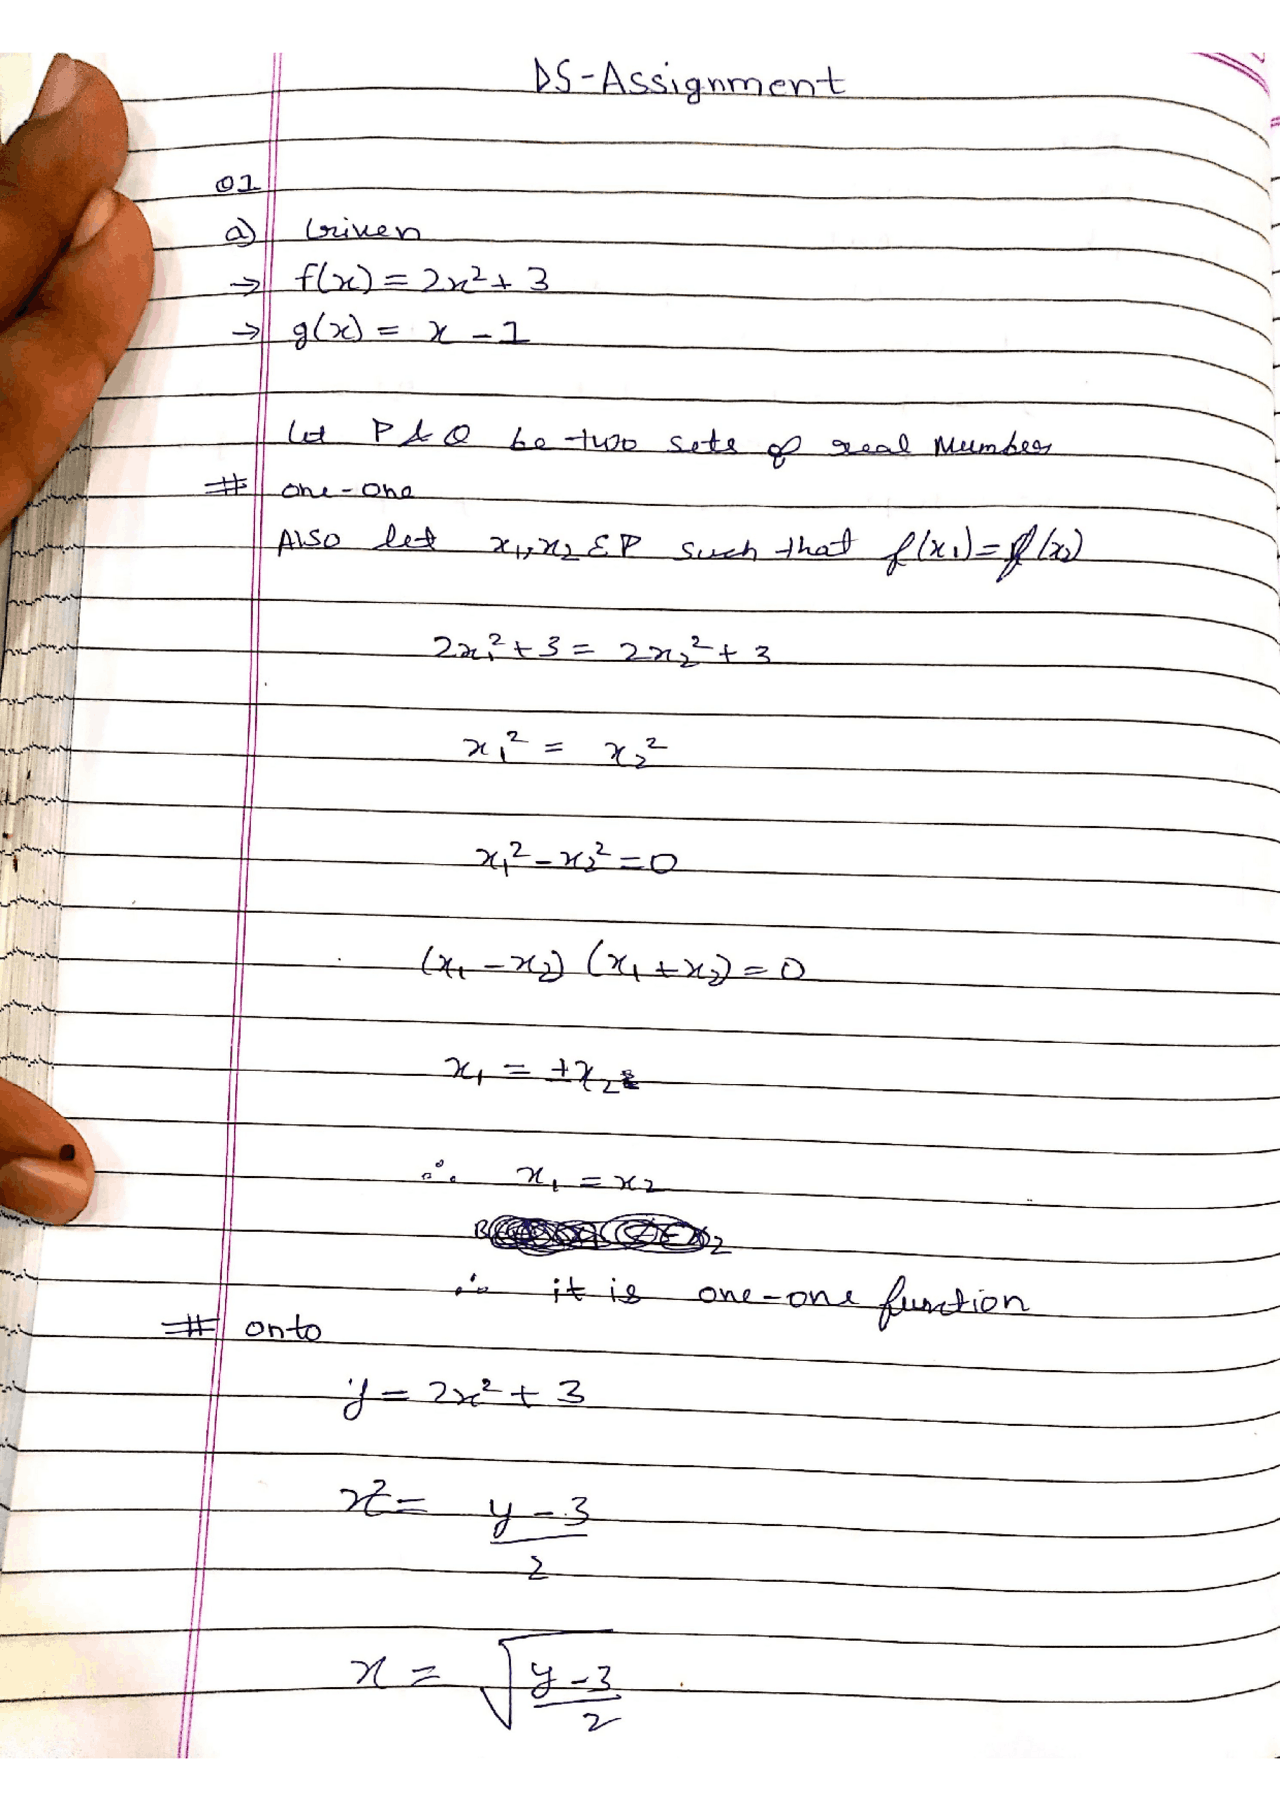 DS-Assignment
Q1
a) Given
→ f(x) = 2x² + 3
→ g(x) = x - 1
Let P & Q be two sets of real Number
# one-one
Also let x₁, x₂ ε P such that f(x₁) = f(x₂)
2x₁² + 3 = 2x₂² + 3
x₁² = x₂²
x₁² - x₂² = 0
(x₁ - x₂) (x₁ + x₂) = 0
x₁ = ±x₂
∴ x₁ = x₂
∴ it is one-one function
# onto
y = 2x² + 3
x² = y - 3 / 2
x = √(y - 3 / 2)